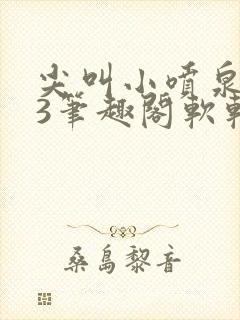 尖叫小喷泉
3笔趣阁软
桑島黎音